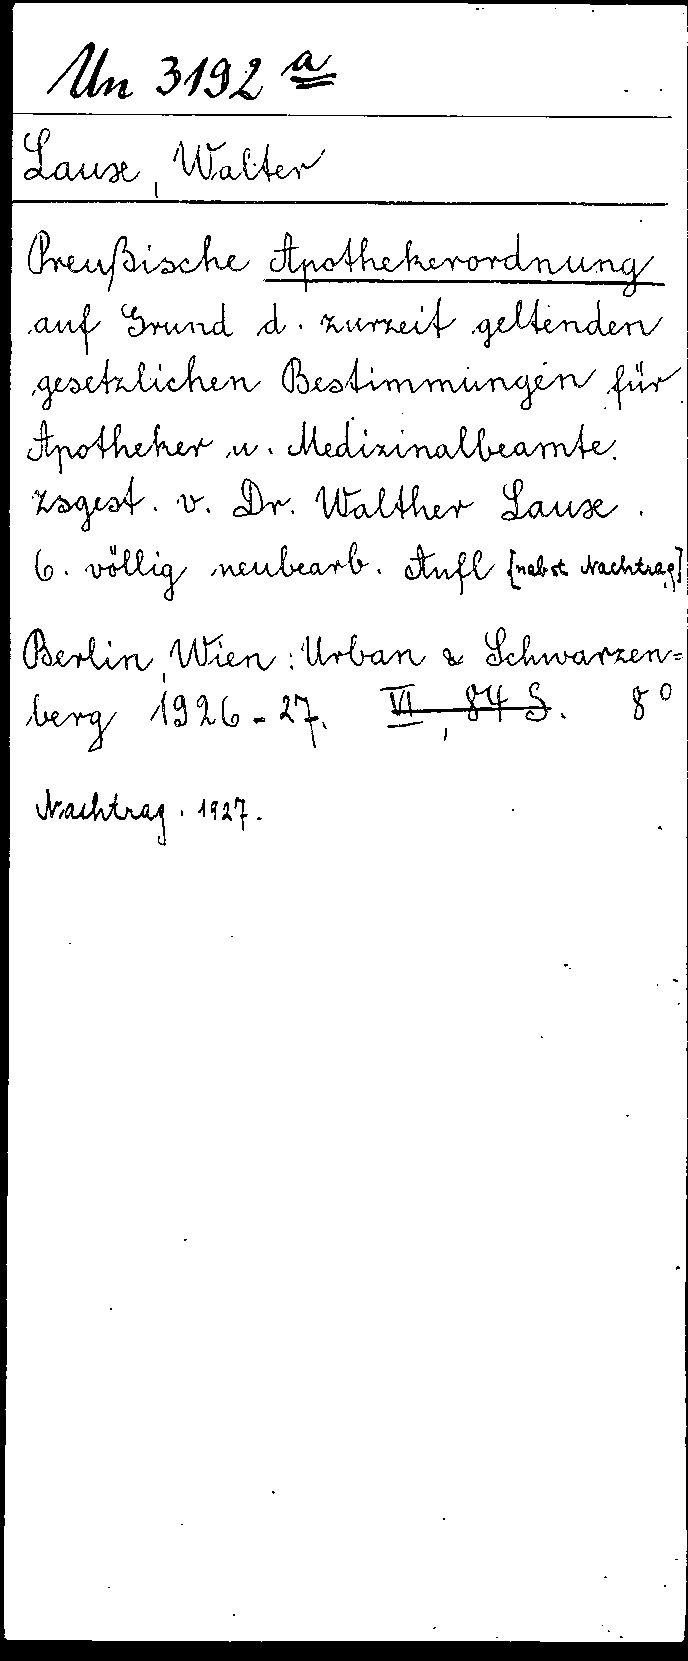 Un 3192 a
Laux, Walter
Preußische Apothekerordnung
auf Grund d. zurzeit geltenden
gesetzlichen Bestimmungen für
Apotheker u. Medizinalbeamte.
zsgest. v. Dr. Walther Laux.
6. völlig neubearb. Aufl [nebst Nachtrag]
Berlin, Wien: Urban & Schwarzen=
berg 1926-27. VI, 84 S. 8°
Nachtrag. 1927.